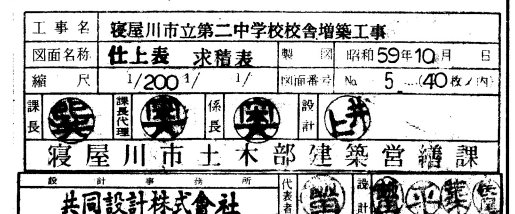 工事名 寝屋川市立第二中学校校舎増築工事
図面名称 仕上表 求積表 製図 昭和59年10月 日
縮尺 1/200 1/ 1/ 図面番号 No. 5 (40枚ノ内)
課長 課長代理 奥 係長 奥 設計 井上
寝屋川市土木部建築営繕課
設計事務所 代表者 設計
共同設計株式會社